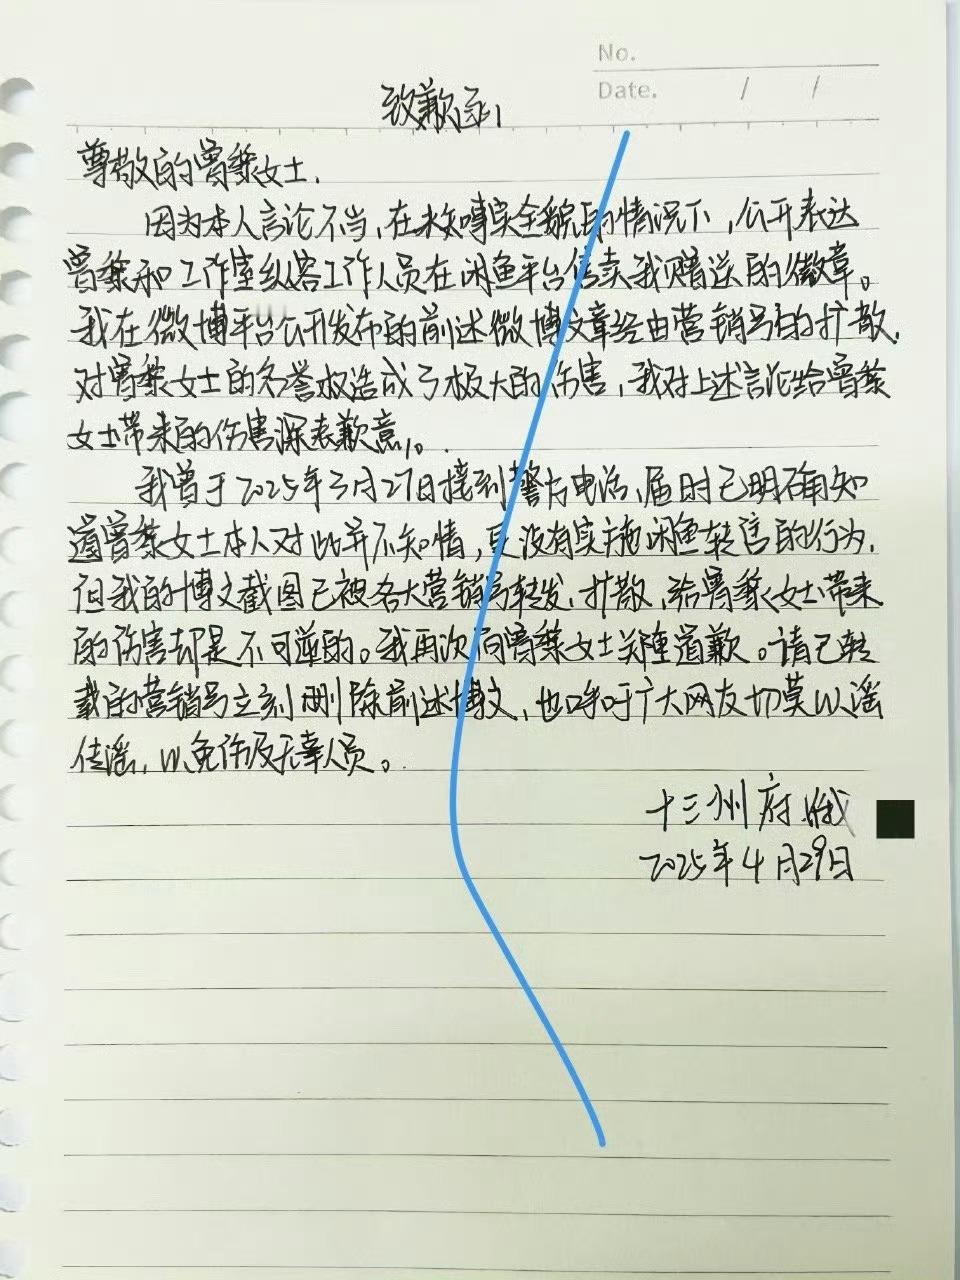 No.
Date. / /
致歉函
尊敬的曾黎女士.
因为本人言论不当,在未知啨实全貌的情况下,公开表达
曾黎和工作室纵容工作人员在闲鱼平台售卖我赠送的徽章。
我在微博平台公开发布的前述微博文章经由营销号的扩散,
对曾黎女士的名誉权造成了极大的伤害,我对上述言论给曾黎
女士带来的伤害深表歉意。
我曾于2025年3月27日接到警方电话,届时已明确知
道曾黎女士本人对此并不知情,更没有实施闲鱼转售的行为,
但我的博文截图已被各大营销号转发、扩散,给曾黎女士带来
的伤害却是不可逆的。我再次向曾黎女士郑重道歉。请已转
载的营销号立刻删除前述博文,也呼吁广大网友切莫以谣
传谣,以免伤及无辜人员。
十三州府
2025年4月29日